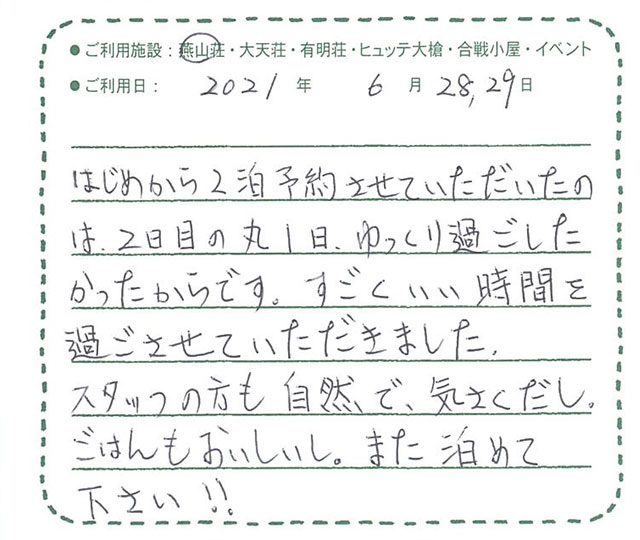 ●ご利用施設：燕山荘・大天荘・有明荘・ヒュッテ大槍・合戦小屋・イベント
●ご利用日： 2021 年 6 月 28,29 日
はじめから2泊予約させていただいたの
は、2日目の丸1日、ゆっくり過ごした
かったからです。すごくいい時間を
過ごさせていただきました。
スタッフの方も自然で、気さくだし。
ごはんもおいしいし。また泊めて
下さい!!